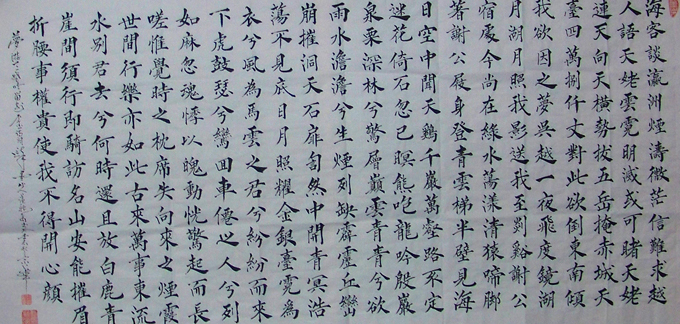 海客談瀛洲煙濤微茫信難求越
人語天姥雲霓明滅或可睹天姥
連天向天橫勢拔五岳掩赤城天
臺四萬捌仟丈對此欲倒東南傾
我欲因之夢吳越一夜飛度鏡湖
月湖月照我影送我至剡谿謝公
宿處今尚在綠水蕩漾清猿啼脚
著謝公屐身登青雲梯半壁見海
日空中聞天鷄千巖萬壑路不定
迷花倚石忽已暝熊咆龍吟殷巖
泉栗深林兮驚層巔雲青青兮欲
雨水澹澹兮生煙列缺霹靂丘巒
崩摧洞天石扉訇然中開青冥浩
蕩不見底日月照耀金銀臺霓為
衣兮風為馬雲之君兮紛紛而來
下虎鼓瑟兮鸞回車僊之人兮列
如麻忽魂悸以魄動怳驚起而長
嗟惟覺時之枕席失向來之煙霞
世間行樂亦如此古來萬事東流
水別君去兮何時還且放白鹿青
崖間須行即騎訪名山安能摧眉
折腰事權貴使我不得開心顏